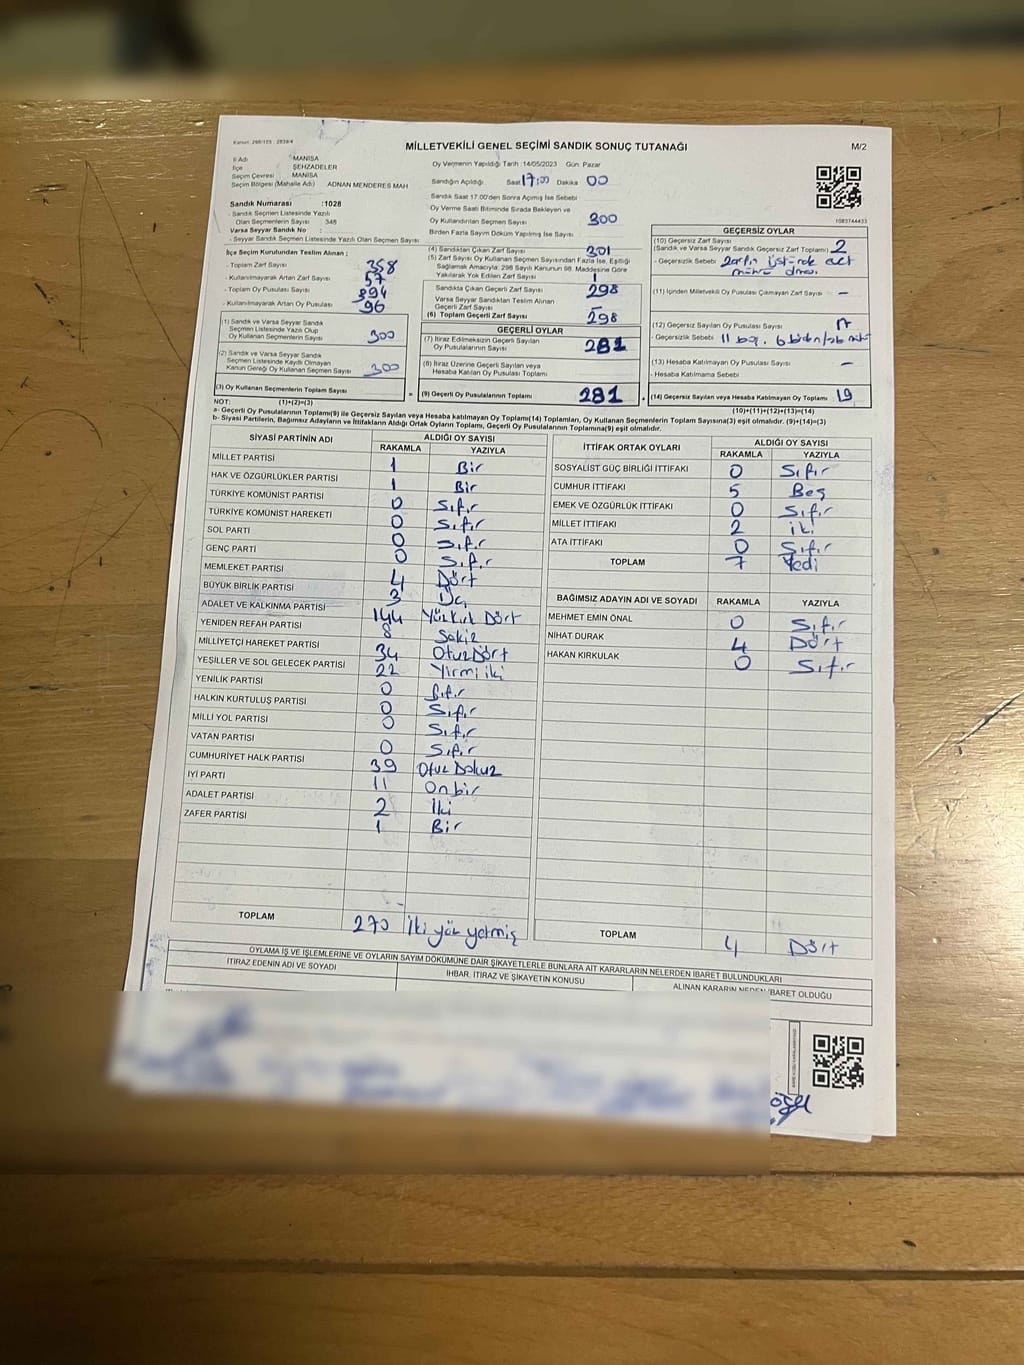 Kanun: 298/105 : 2839/4
MİLLETVEKİLİ GENEL SEÇİMİ SANDIK SONUÇ TUTANAĞI
M/2
İl Adı : MANİSA
İlçe : ŞEHZADELER
Seçim Çevresi : MANİSA
Seçim Bölgesi (Mahalle Adı) : ADNAN MENDERES MAH
Oy Vermenin Yapıldığı Tarih :14/05/2023 Gün: Pazar
Sandığın Açıldığı Saat 17:00 Dakika 00
Sandık Saat 17.00'den Sonra Açılmış İse Sebebi
Oy Verme Saati Bitiminde Sırada Bekleyen ve
Oy Kullandırılan Seçmen Sayısı 300
Birden Fazla Sayım Döküm Yapılmış İse Sayısı
1083744433
Sandık Numarası :1028
- Sandık Seçmen Listesinde Yazılı
Olan Seçmenlerin Sayısı : 348
Varsa Seyyar Sandık No :
- Seyyar Sandık Seçmen Listesinde Yazılı Olan Seçmen Sayısı
İlçe Seçim Kurulundan Teslim Alınan ;
- Toplam Zarf Sayısı 358
- Kullanılmayarak Artan Zarf Sayısı 57
- Toplam Oy Pusulası Sayısı 394
- Kullanılmayarak Artan Oy Pusulası 96
(1) Sandık ve Varsa Seyyar Sandık
Seçmen Listesinde Yazılı Olup
Oy Kullanan Seçmenlerin Sayısı 300
(2) Sandık ve Varsa Seyyar Sandık
Seçmen Listesinde Kayıtlı Olmayan
Kanun Gereği Oy Kullanan Seçmen Sayısı 300
(3) Oy Kullanan Seçmenlerin Toplam Sayısı
(4) Sandıktan Çıkan Zarf Sayısı 301
(5) Zarf Sayısı Oy Kullanan Seçmen Sayısından Fazla İse, Eşitliği
Sağlamak Amacıyla; 298 Sayılı Kanunun 98. Maddesine Göre
Yakılarak Yok Edilen Zarf Sayısı 1
Sandıkta Çıkan Geçerli Zarf Sayısı 298
Varsa Seyyar Sandıktan Teslim Alınan
Geçerli Zarf Sayısı –
(6) Toplam Geçerli Zarf Sayısı 298
GEÇERLİ OYLAR
(7) İtiraz Edilmeksizin Geçerli Sayılan
Oy Pusulalarının Sayısı 281
(8) İtiraz Üzerine Geçerli Sayılan veya
Hesaba Katılan Oy Pusulası Toplamı
= (9) Geçerli Oy Pusulalarının Toplamı 281
GEÇERSİZ OYLAR
(10) Geçersiz Zarf Sayısı
(Sandık ve Varsa Seyyar Sandık Geçersiz Zarf Toplamı) 2
- Geçersizlik Sebebi : Zarfın üstünde evet
mührü olması
(11) İçinden Milletvekili Oy Pusulası Çıkmayan Zarf Sayısı –
(12) Geçersiz Sayılan Oy Pusulası Sayısı 17
- Geçersizlik Sebebi : 11 boş. 6
(13) Hesaba Katılmayan Oy Pusulası Sayısı –
- Hesaba Katılmama Sebebi :
+ (14) Geçersiz Sayılan veya Hesaba Katılmayan Oy Toplamı 19
NOT: (1)+(2)=(3)
(10)+(11)+(12)+(13)=(14)
a- Geçerli Oy Pusulalarının Toplamı(9) ile Geçersiz Sayılan veya Hesaba katılmayan Oy Toplamı(14) Toplamları, Oy Kullanan Seçmenlerin Toplam Sayısına(3) eşit olmalıdır. (9)+(14)=(3)
b- Siyasi Partilerin, Bağımsız Adayların ve İttifakların Aldığı Ortak Oyların Toplamı, Geçerli Oy Pusulalarının Toplamına(9) eşit olmalıdır.
SİYASİ PARTİNİN ADI ALDIĞI OY SAYISI
RAKAMLA YAZIYLA
MİLLET PARTİSİ 1 Bir
HAK VE ÖZGÜRLÜKLER PARTİSİ 1 Bir
TÜRKİYE KOMÜNİST PARTİSİ 0 Sıfır
TÜRKİYE KOMÜNİST HAREKETİ 0 Sıfır
SOL PARTİ 0 Sıfır
GENÇ PARTİ 0 Sıfır
MEMLEKET PARTİSİ 4 Dört
BÜYÜK BİRLİK PARTİSİ 3 Üç
ADALET VE KALKINMA PARTİSİ 144 Yüzkırk Dört
YENİDEN REFAH PARTİSİ 8 Sekiz
MİLLİYETÇİ HAREKET PARTİSİ 34 Otuz Dört
YEŞİLLER VE SOL GELECEK PARTİSİ 22 Yirmi iki
YENİLİK PARTİSİ 0 Sıfır
HALKIN KURTULUŞ PARTİSİ 0 Sıfır
MİLLİ YOL PARTİSİ 0 Sıfır
VATAN PARTİSİ 0 Sıfır
CUMHURİYET HALK PARTİSİ 39 Otuz Dokuz
İYİ PARTİ 11 Onbir
ADALET PARTİSİ 2 İki
ZAFER PARTİSİ 1 Bir
TOPLAM 270 İki yüz yetmiş
İTTİFAK ORTAK OYLARI ALDIĞI OY SAYISI
RAKAMLA YAZIYLA
SOSYALİST GÜÇ BİRLİĞİ İTTİFAKI 0 Sıfır
CUMHUR İTTİFAKI 5 Beş
EMEK VE ÖZGÜRLÜK İTTİFAKI 0 Sıfır
MİLLET İTTİFAKI 2 iki
ATA İTTİFAKI 0 Sıfır
TOPLAM 7 Yedi
BAĞIMSIZ ADAYIN ADI VE SOYADI RAKAMLA YAZIYLA
MEHMET EMİN ÖNAL 0 Sıfır
NİHAT DURAK 4 Dört
HAKAN KIRKULAK 0 Sıfır
TOPLAM 4 Dört
OYLAMA İŞ VE İŞLEMLERİNE VE OYLARIN SAYIM DÖKÜMÜNE DAİR ŞİKAYETLERLE BUNLARA AİT KARARLARIN NELERDEN İBARET BULUNDUKLARI
İTİRAZ EDENİN ADI VE SOYADI
İHBAR, İTİRAZ VE ŞİKAYETİN KONUSU
ALINAN KARARIN NEDEN İBARET OLDUĞU